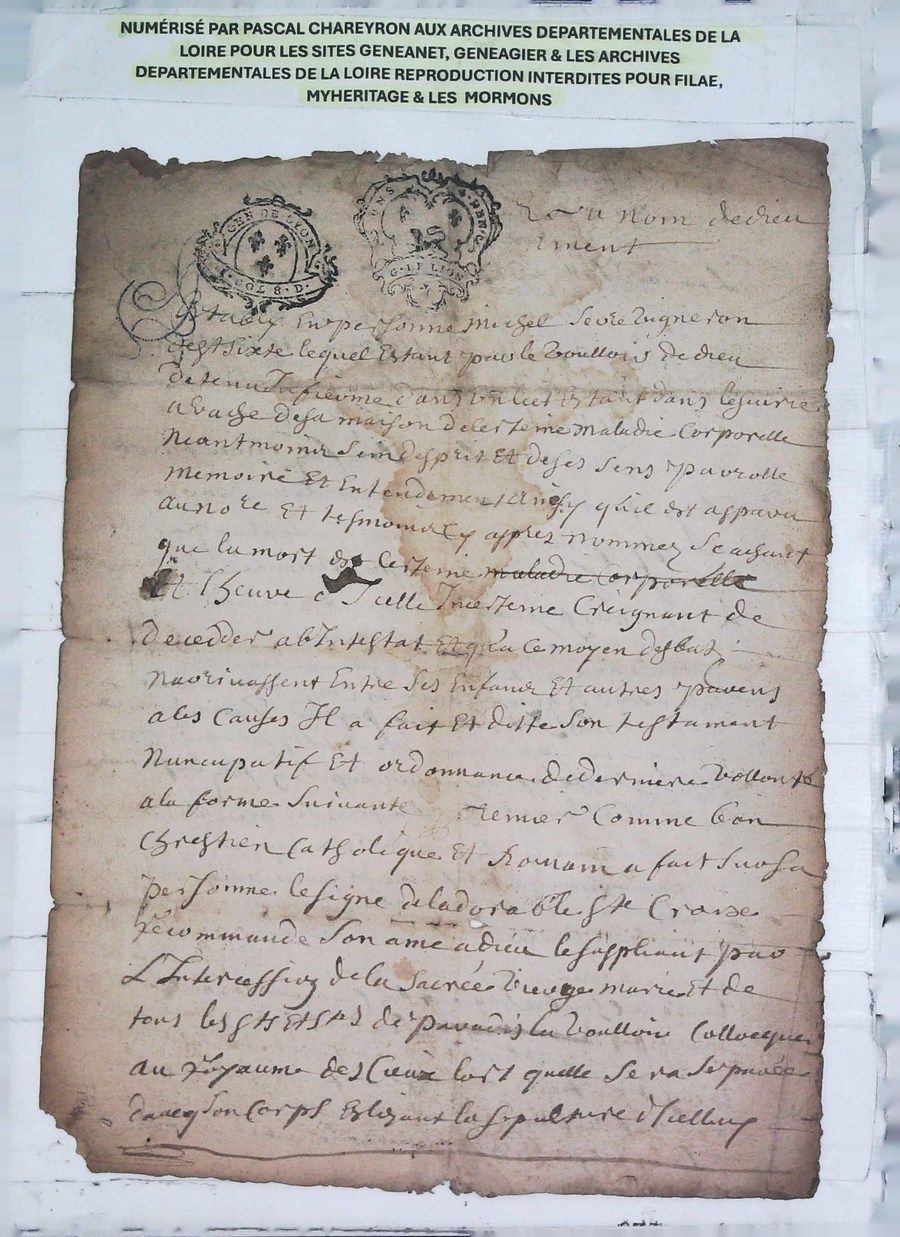 NUMÉRISÉ PAR PASCAL CHAREYRON AUX ARCHIVES DEPARTEMENTALES DE LA
LOIRE POUR LES SITES GENEANET, GENEAGIER & LES ARCHIVES
DEPARTEMENTALES DE LA LOIRE REPRODUCTION INTERDITES POUR FILAE,
MYHERITAGE & LES MORMONS
GEN DE LYON
SOL 8 D
G LYON
Nom de dieu
Estably En personne Michel vigneron
lequel Estant par le voulloir de dieu
detenu Infierme dans un lict Estant dans
de sa maison de certeine maladie Corporelle
Neantmoins sein desprit Et de ses sens parolle
memoire Et Entendement quil est apparu
au nore Et tesmoins cy apres nommez Scachant
que la mort est certeine maladie corporelle
Et lheure dIcelle Incerteine Creignant de
decedder abIntestat Et qua ce moyen desbat
Narrivassent Entre ses Enfans Et autres parens
a les Causes Il a fait Et ditte son testament
Nuncupatif Et ordonnance de derniere vollonte
a la forme suivante Premier Comme bon
Chrestien Catholique Et Romain a fait sur sa
personne le signe de ladorable Ste Croix
recommande son ame a dieu le suppliant par
LIntercession de la sacrée vierge marie Et de
tous les Sts Et Stes de paradis la voulloir Collocquer
au Royaume des Cieux lors quelle sera Separée
davecq son Corps Eslizant la sepulture dIcelluy